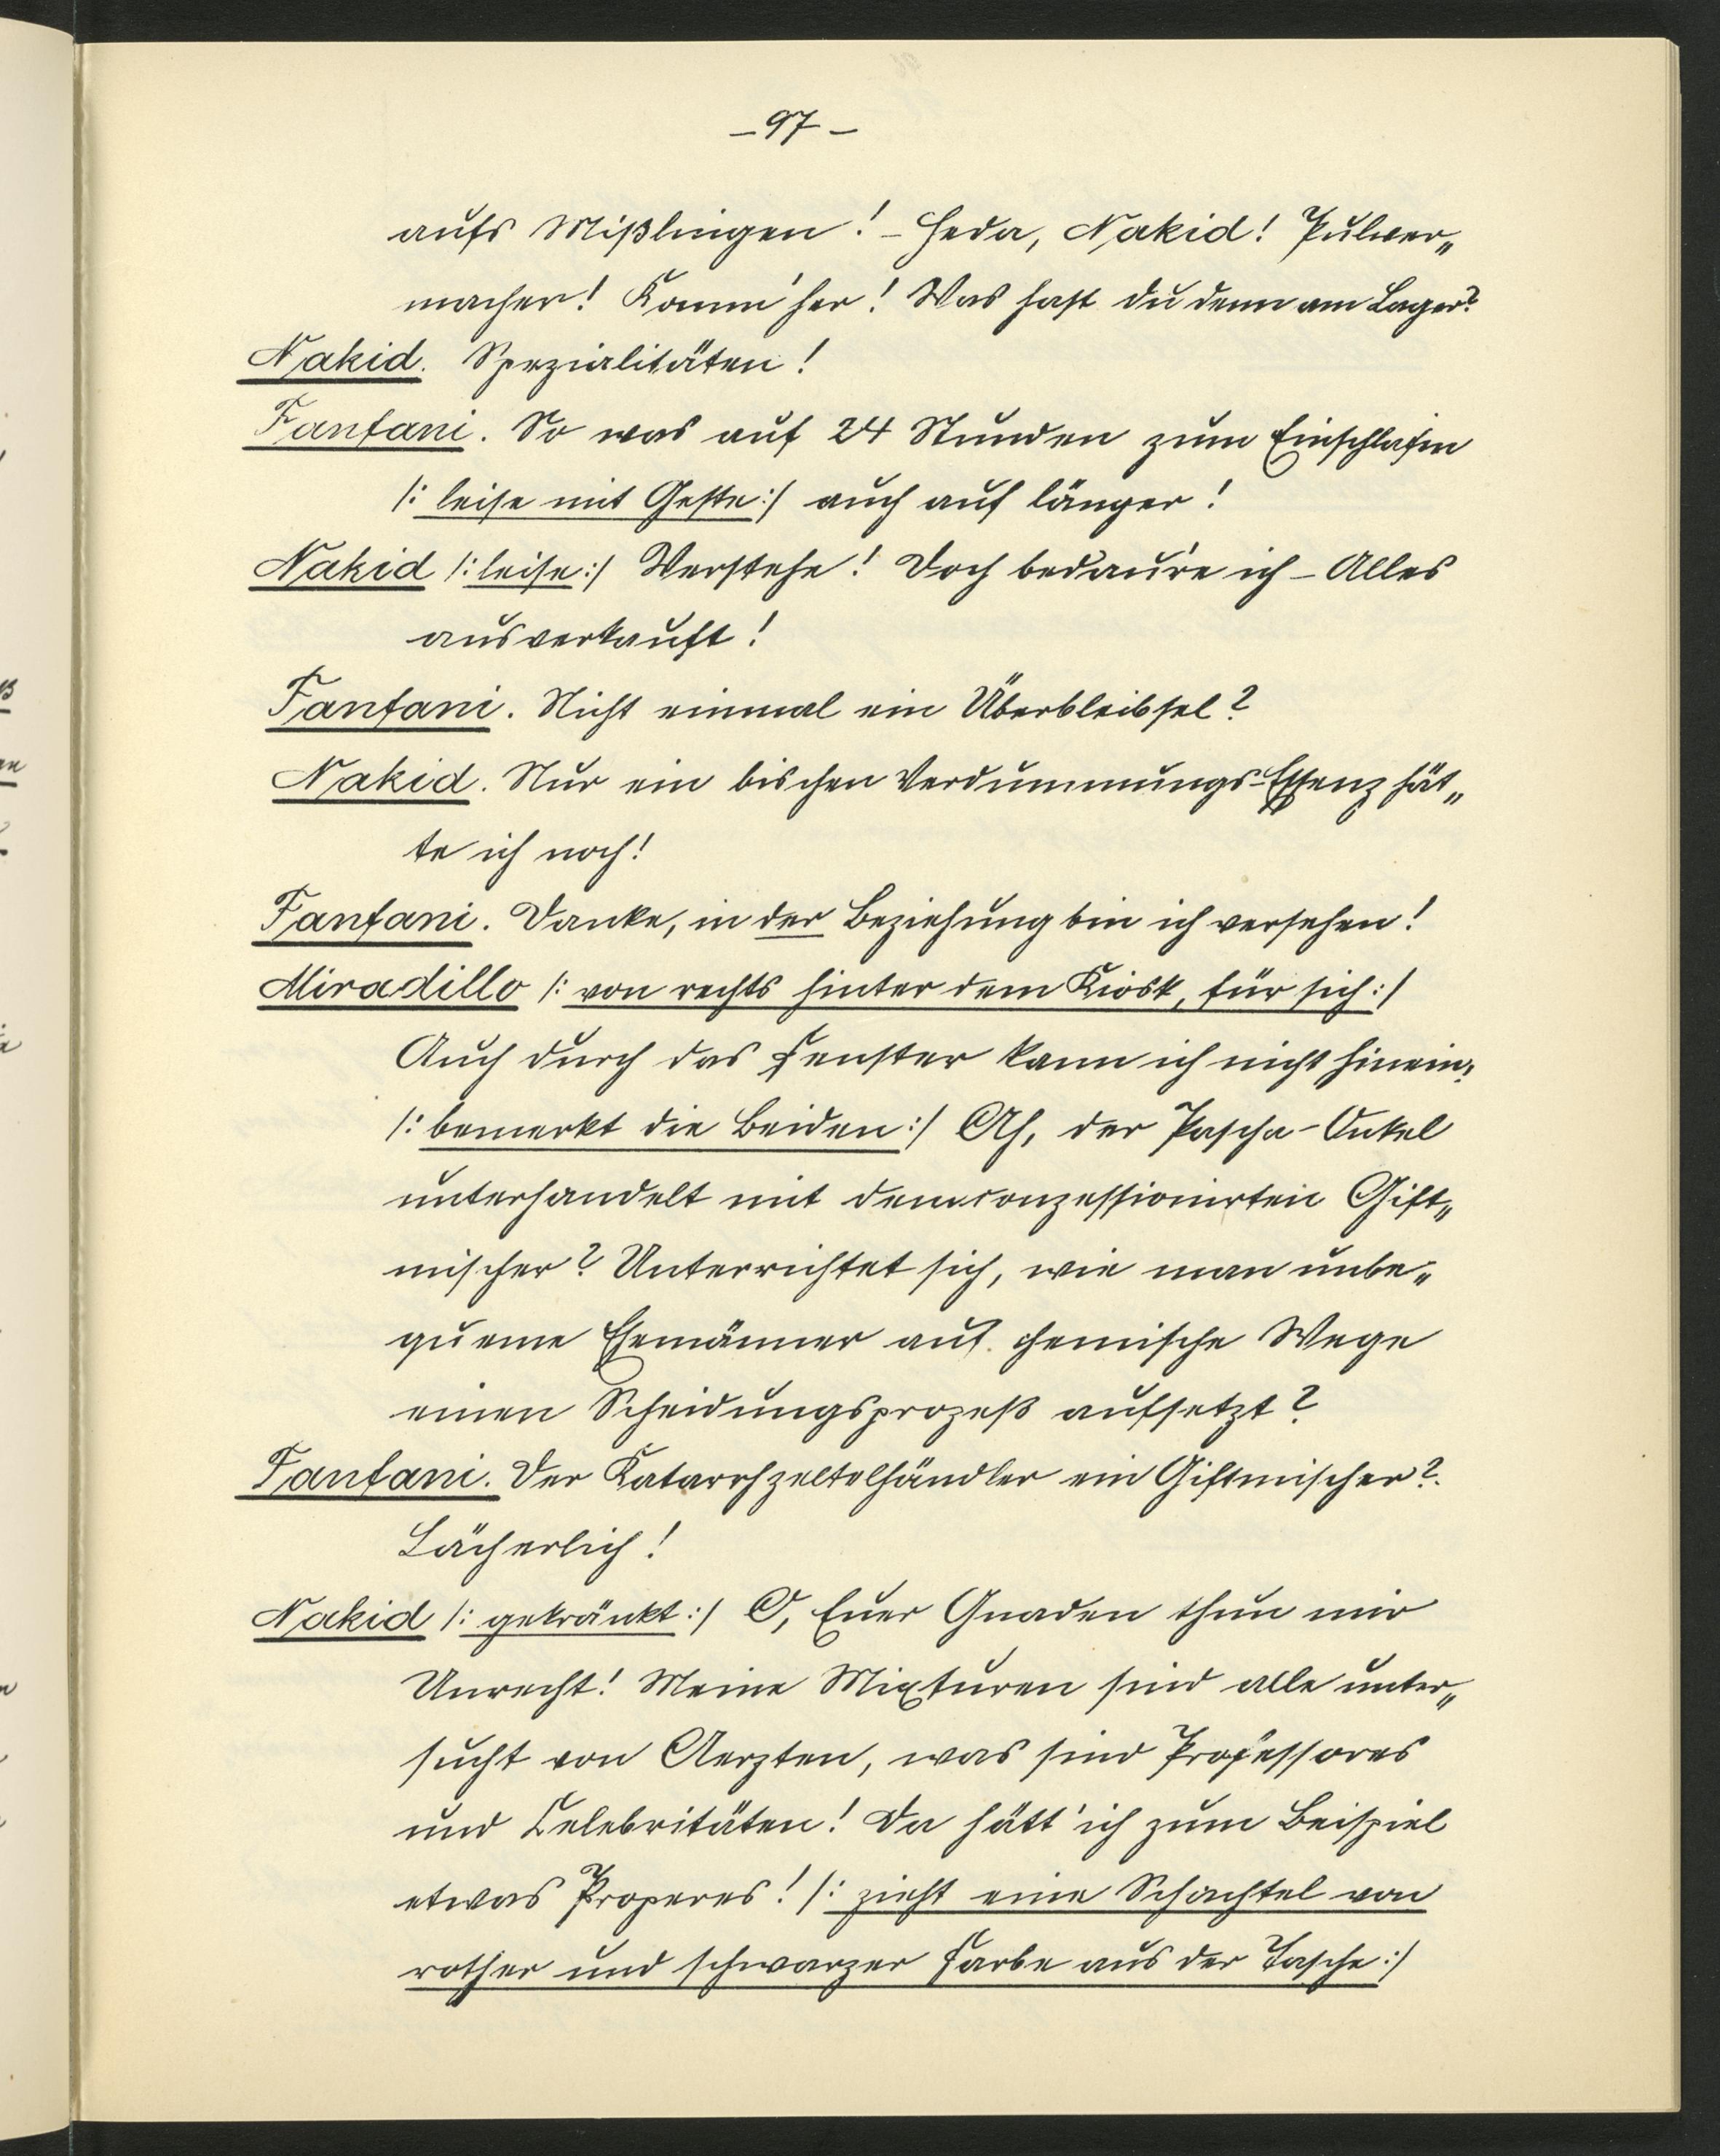 – 97 –
aufs Mißlingen! – Heda, Nakid! Pulver„
macher! Komm' her! Was hast du denn am Lager?
Nakid. Spezialitäten!
Fanfani. So was auf 24 Stunden zum Einschlafen
/: leise mit Geste :/ auch auf länger!
Nakid /: leise :/ Verstehe! Doch bedau're ich – Alles
ausverkauft!
Fanfani. Nicht einmal ein Überbleibsel?
Nakid. Nur ein bischen Verdummungs-Essenz hät„
te ich noch!
Fanfani. Danke, in der Beziehung bin ich versehen!
Miradillo /: von rechts hinter dem Kiosk, für sich :/
Auch durch das Fenster kann ich nicht hinein;
/: bemerkt die Beiden :/ Ah, der Pascha-Onkel
unterhandelt mit dem conzessionirten Gift„
mischer? Unterrichtet sich, wie man unbe„
queme Ehemänner auf chemische Wege
einen Scheidungsprozeß aufsetzt?
Fanfani. Der Katarrhzeltelhändler ein Giftmischer?
Lächerlich!
Nakid /: gekränkt :/ O, Euer Gnaden thun mir
Unrecht! Meine Mixturen sind alle unter„
sucht von Aerzten, was sind Professores
und Celebritäten! Da hätt' ich zum Beispiel
etwas Properes! /: zieht eine Schachtel von
rother und schwarzer Farbe aus der Tasche :/